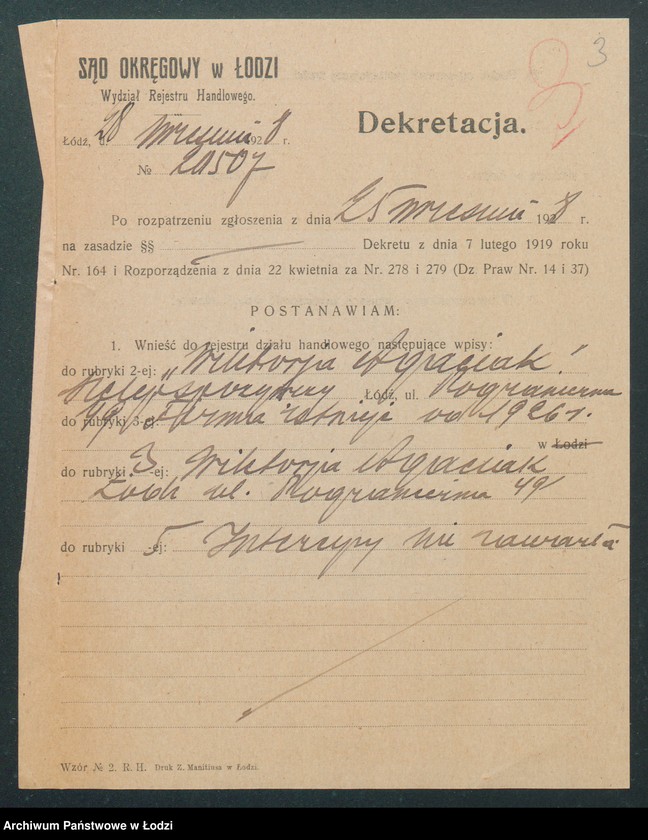 3
SĄD OKRĘGOWY w ŁODZI
Wydział Rejestru Handlowego.
Dekretacja.
Łódź, d. 28 wrzesnia 1928 r.
№ 20507
Po rozpatrzeniu zgłoszenia z dnia 25 wrzesnia 1928 r.
na zasadzie §§ Dekretu z dnia 7 lutego 1919 roku
Nr. 164 i Rozporządzenia z dnia 22 kwietnia za Nr. 278 i 279 (Dz. Praw Nr. 14 i 37)
POSTANAWIAM:
1. Wnieść do rejestru działu handlowego następujące wpisy:
do rubryki 2-ej: „Wiktorja Agaciak".
Sklep spożywczy Łódź, ul. Pograniczna
do rubryki 3-ej: 49. Firma istnieje od 1926 r.
w Łodzi
do rubryki 3-ej: Wiktorja Agaciak
Łódź ul. Pograniczna 49
do rubryki 5-ej: Intercyzy nie zawarła
Wzór № 2. R. H. Druk Z. Manitiusa w Łodzi.
Archiwum Państwowe w Łodzi